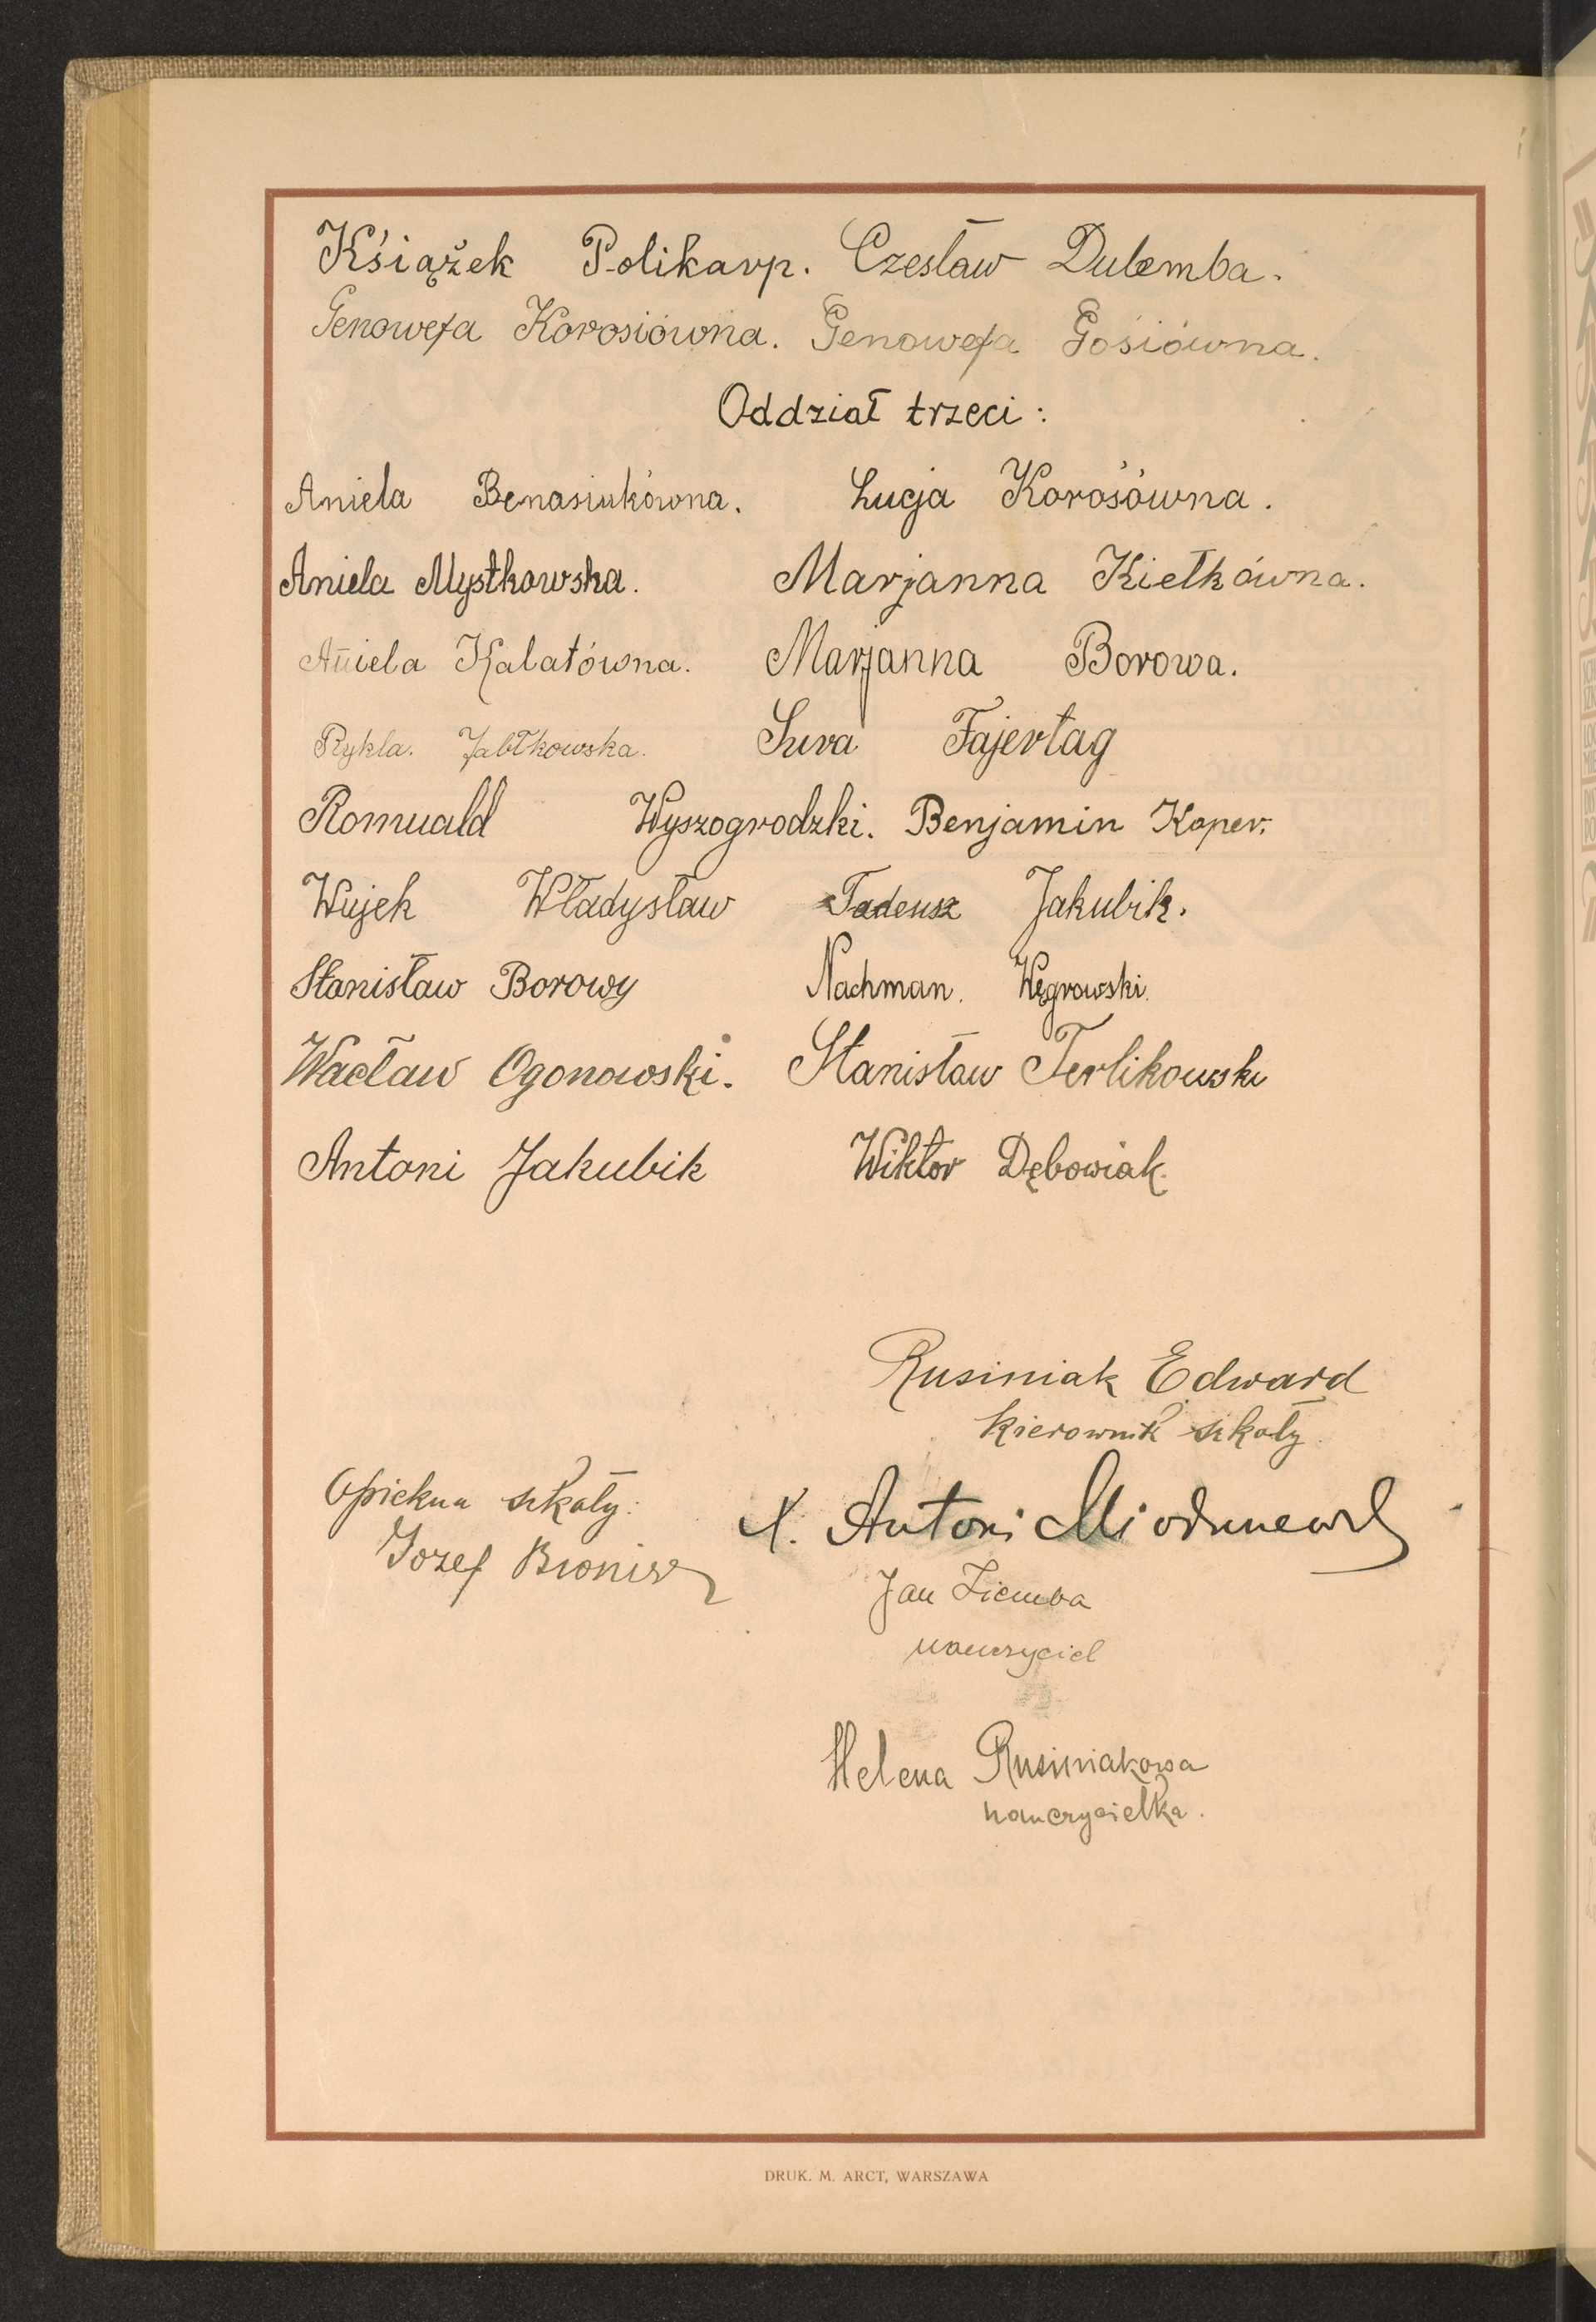 Kśiążek Polikarp. Czesław Dulemba.
Genowefa Korosiówna. Genowefa Gośiówna.
Oddział trzeci:
Aniela Benasiukówna. Łucja Korośówna.
Aniela Mystkowska. Marjanna Kiełkówna.
Aniela Kalatówna. Marjanna Borowa.
Rykla. Jabłkowska. Sura Fajertag
Romuald Wyszogrodzki. Benjamin Koper.
Wujek Władysław Tadeusz Jakubik.
Stanisław Borowy Nachman. Węgrowski.
Wacław Ogonowski. Stanisław Terlikowski
Antoni Jakubik Wiktor Dębowiak.
Rusiniak Edward
Kierownik szkoły
Opiekun szkoły:
Józef
X. Antoni
Jan Ziemba
nauczyciel
Helena Rusiniakowa
nauczycielka.
DRUK. M. ARCT, WARSZAWA